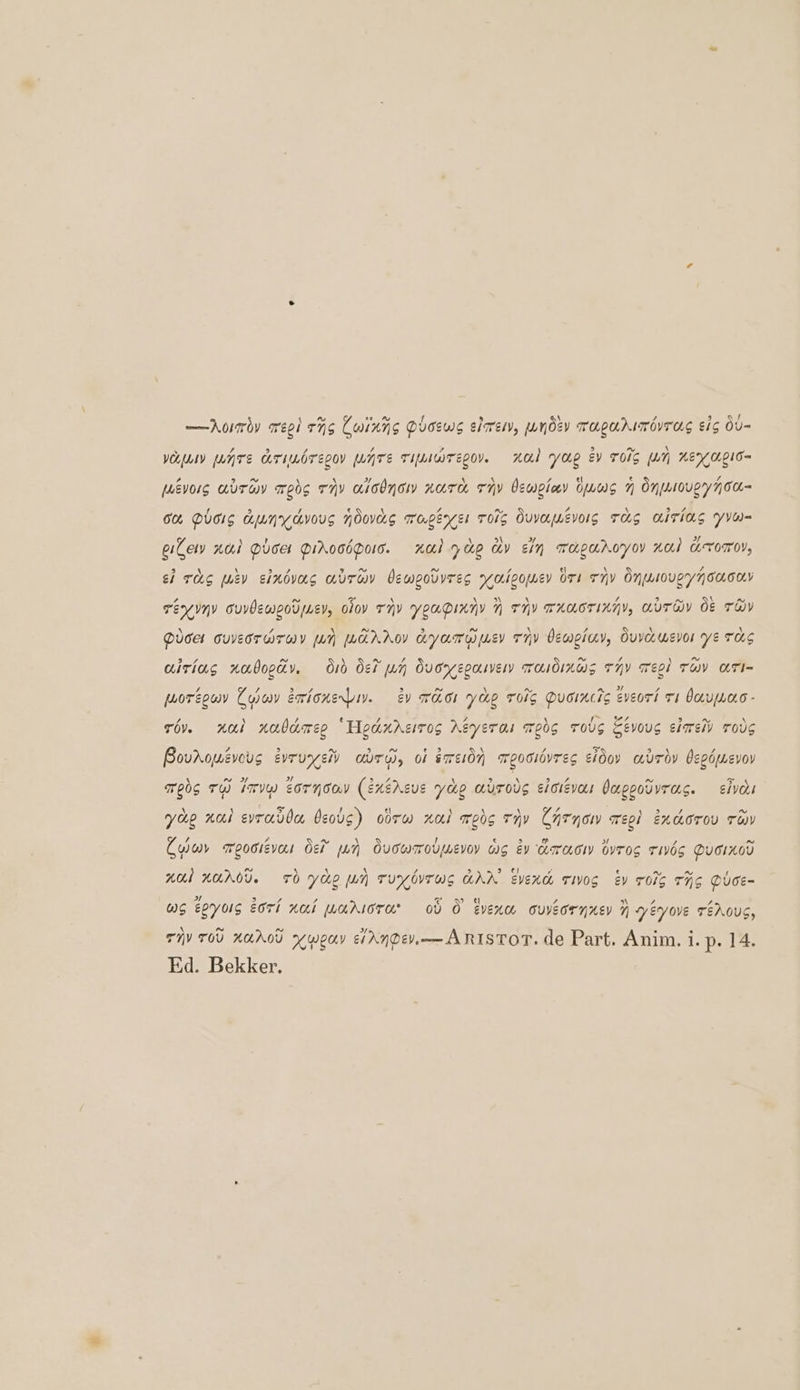 —λοιπὸν περὶ τῆς ζωϊκῆς φύσεως εἰπειν, μηδὲν παραλιπόντας εἰς δύ-
νὰμιν μήτε ἀτιμότερον μήτε τιμιώτερον. καὶ γαρ ἐν τοῖς μὴ κεχαρισ-
μένοις αὐτῶν πρὸς τὴν αἴσθησιν κατὰ τὴν θεωρίαν ὅμως ἡ δημιουργήσα-
σα φύσις ἀμηχάνους ἡδονὰς παρέχει τοῖς δυναμένοις τὰς αἰτίας γνω-
ριζειν καὶ φύσει φιλοσόφοις. καὶ γὰρ ἂν εἴη παραλογον καὶ ἄτοπον,
εἰ τὰς μὲν εἰκόνας αὐτῶν θεωροῦντες χαίρομεν ὅτι τὴν δημιουργήσασαν
τέχνην συνθεωροῦμεν, οἷον τὴν γραφικὴν ἢ τὴν πκαστικήν, αὐτῶν δὲ τῶν
φὺσει συνεστώτων μὴ μᾶλλον ἀγαπῷμεν τὴν θεωρίαν, δυνὰμενοι γε τὰς
αἰτίας καθορᾶν. διὸ δεῖ μή δυσχεραινειν παιδικῶς τήν περὶ τῶν ατι-
μοτέρων ζῴων ἐπίσκεψιν. ἐν πᾶσι γὰρ τοῖς φυσικοῖς ἔνεστί τι θαυμασ-
τόν. καὶ καθάπερ Ἡράκλειτος λέγεται πρὸς τούς ξένους εἰπεῖν τοὺς
βουλομένους ἐντυχεῖν αὐτῷ, οἱ ἐπειδὴ προσιόντες εἶδον αὐτὸν θερόμενον
πρὸς τῷ ἴπνῳ ἔστησαν (ἐκέλευε γὰρ αὐτοὺς εἰσιέναι θαρροῦντας. εἶνὰι
γὰρ καὶ ενταῦθα θεούς) οὕτω καὶ πρὸς τὴν ζήτησιν περὶ ἑκάστου τῶν
ζῴων προσιέναι δεῖ μὴ δυσωποὺμενον ὡς ἐν ἅπασιν ὄντος τινός φυσικοῦ
καὶ καλοῦ. τὸ γὰρ μὴ τυχόντως ἀλλ’ ἕνεκά τινος ἐν τοῖς τῆς φύσε-
ως ἔργοις ἐστί καί μαλιστα· οὗ δ’ ἕνεκα συνέστηκεν ἢ γέγονε τέλους,
τὴν τοῦ καλοῦ χωραν εἴληφεν.—ARISTOT. de Part. Anim. i. p. 14.
Ed. Bekker.